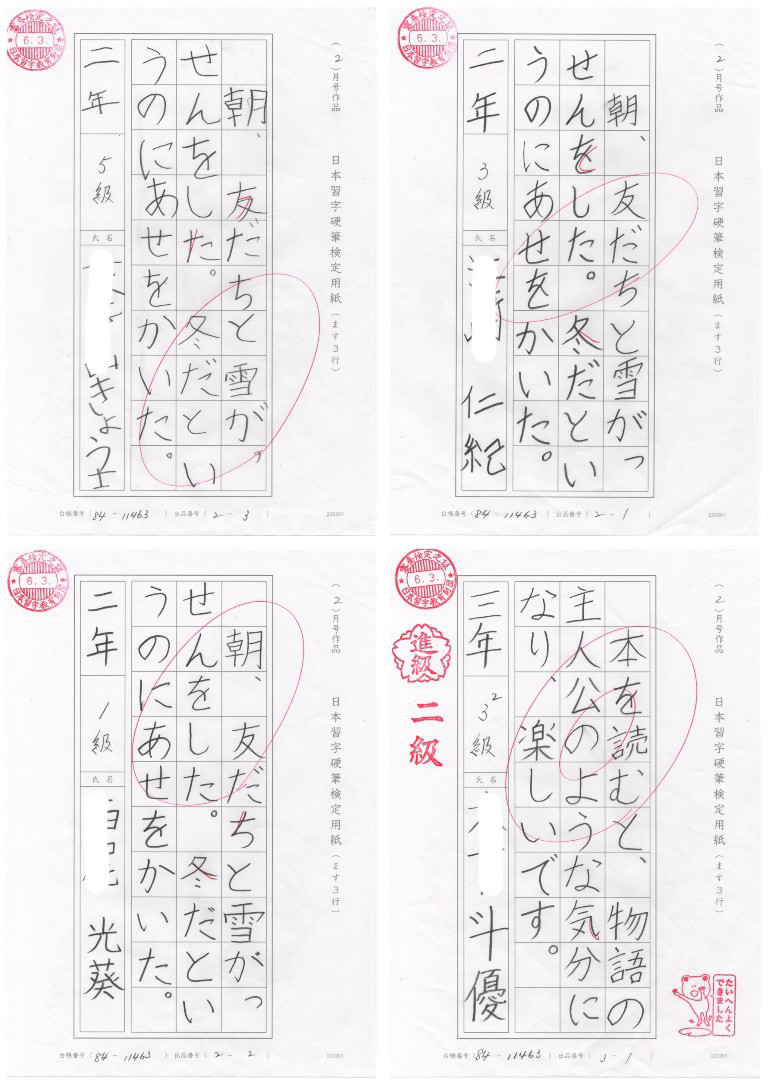 (2)月号作品
日本習字硬筆検定用紙(ます3行)
朝、友だちと雪がっ
せんをした。冬だとい
うのにあせをかいた。
二年
5級
氏名
6.3.
日本習字教育財団
台帳番号(84-11463)出品番号(2-3)
220201
(2)月号作品
日本習字硬筆検定用紙(ます3行)
朝、友だちと雪がっ
せんをした。冬だとい
うのにあせをかいた。
二年
3級
氏名
仁紀
6.3.
日本習字教育財団
台帳番号(84-11463)出品番号(2-1)
220201
(2)月号作品
日本習字硬筆検定用紙(ます3行)
朝、友だちと雪がっ
せんをした。冬だとい
うのにあせをかいた。
二年
1級
氏名
光葵
6.3.
日本習字教育財団
台帳番号(84-11463)出品番号(2-2)
220201
(2)月号作品
日本習字硬筆検定用紙(ます3行)
本を読むと、物語の
主人公のような気分に
なり、楽しいです。
三年
3級
2
氏名
斗優
6.3.
日本習字教育財団
進級
二級
たいへんよく
できました
台帳番号(84-11463)出品番号(3-1)
220201